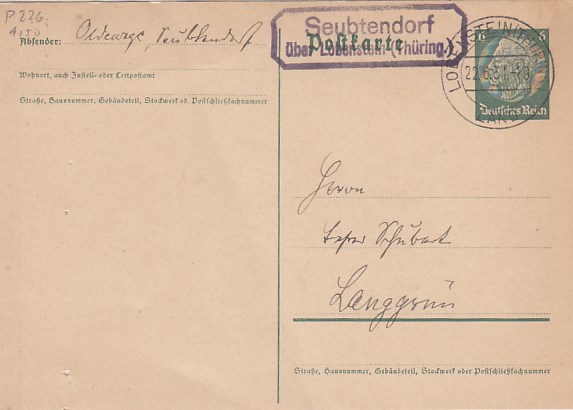 P 226
4,50
Absender: Oldewage, Seubtendorf
Wohnort, auch Zustell- oder Leitpostamt
Straße, Hausnummer, Gebäudeteil, Stockwerk od. Postschließfachnummer
Seubtendorf
über Lobenstein (Thüring.)
Postkarte
6 6
LOBENSTEIN (THÜR)
22.6.34
LAND
Deutsches Reich
Herrn
Schubert
Langgrün
Straße, Hausnummer, Gebäudeteil, Stockwerk oder Postschließfachnummer